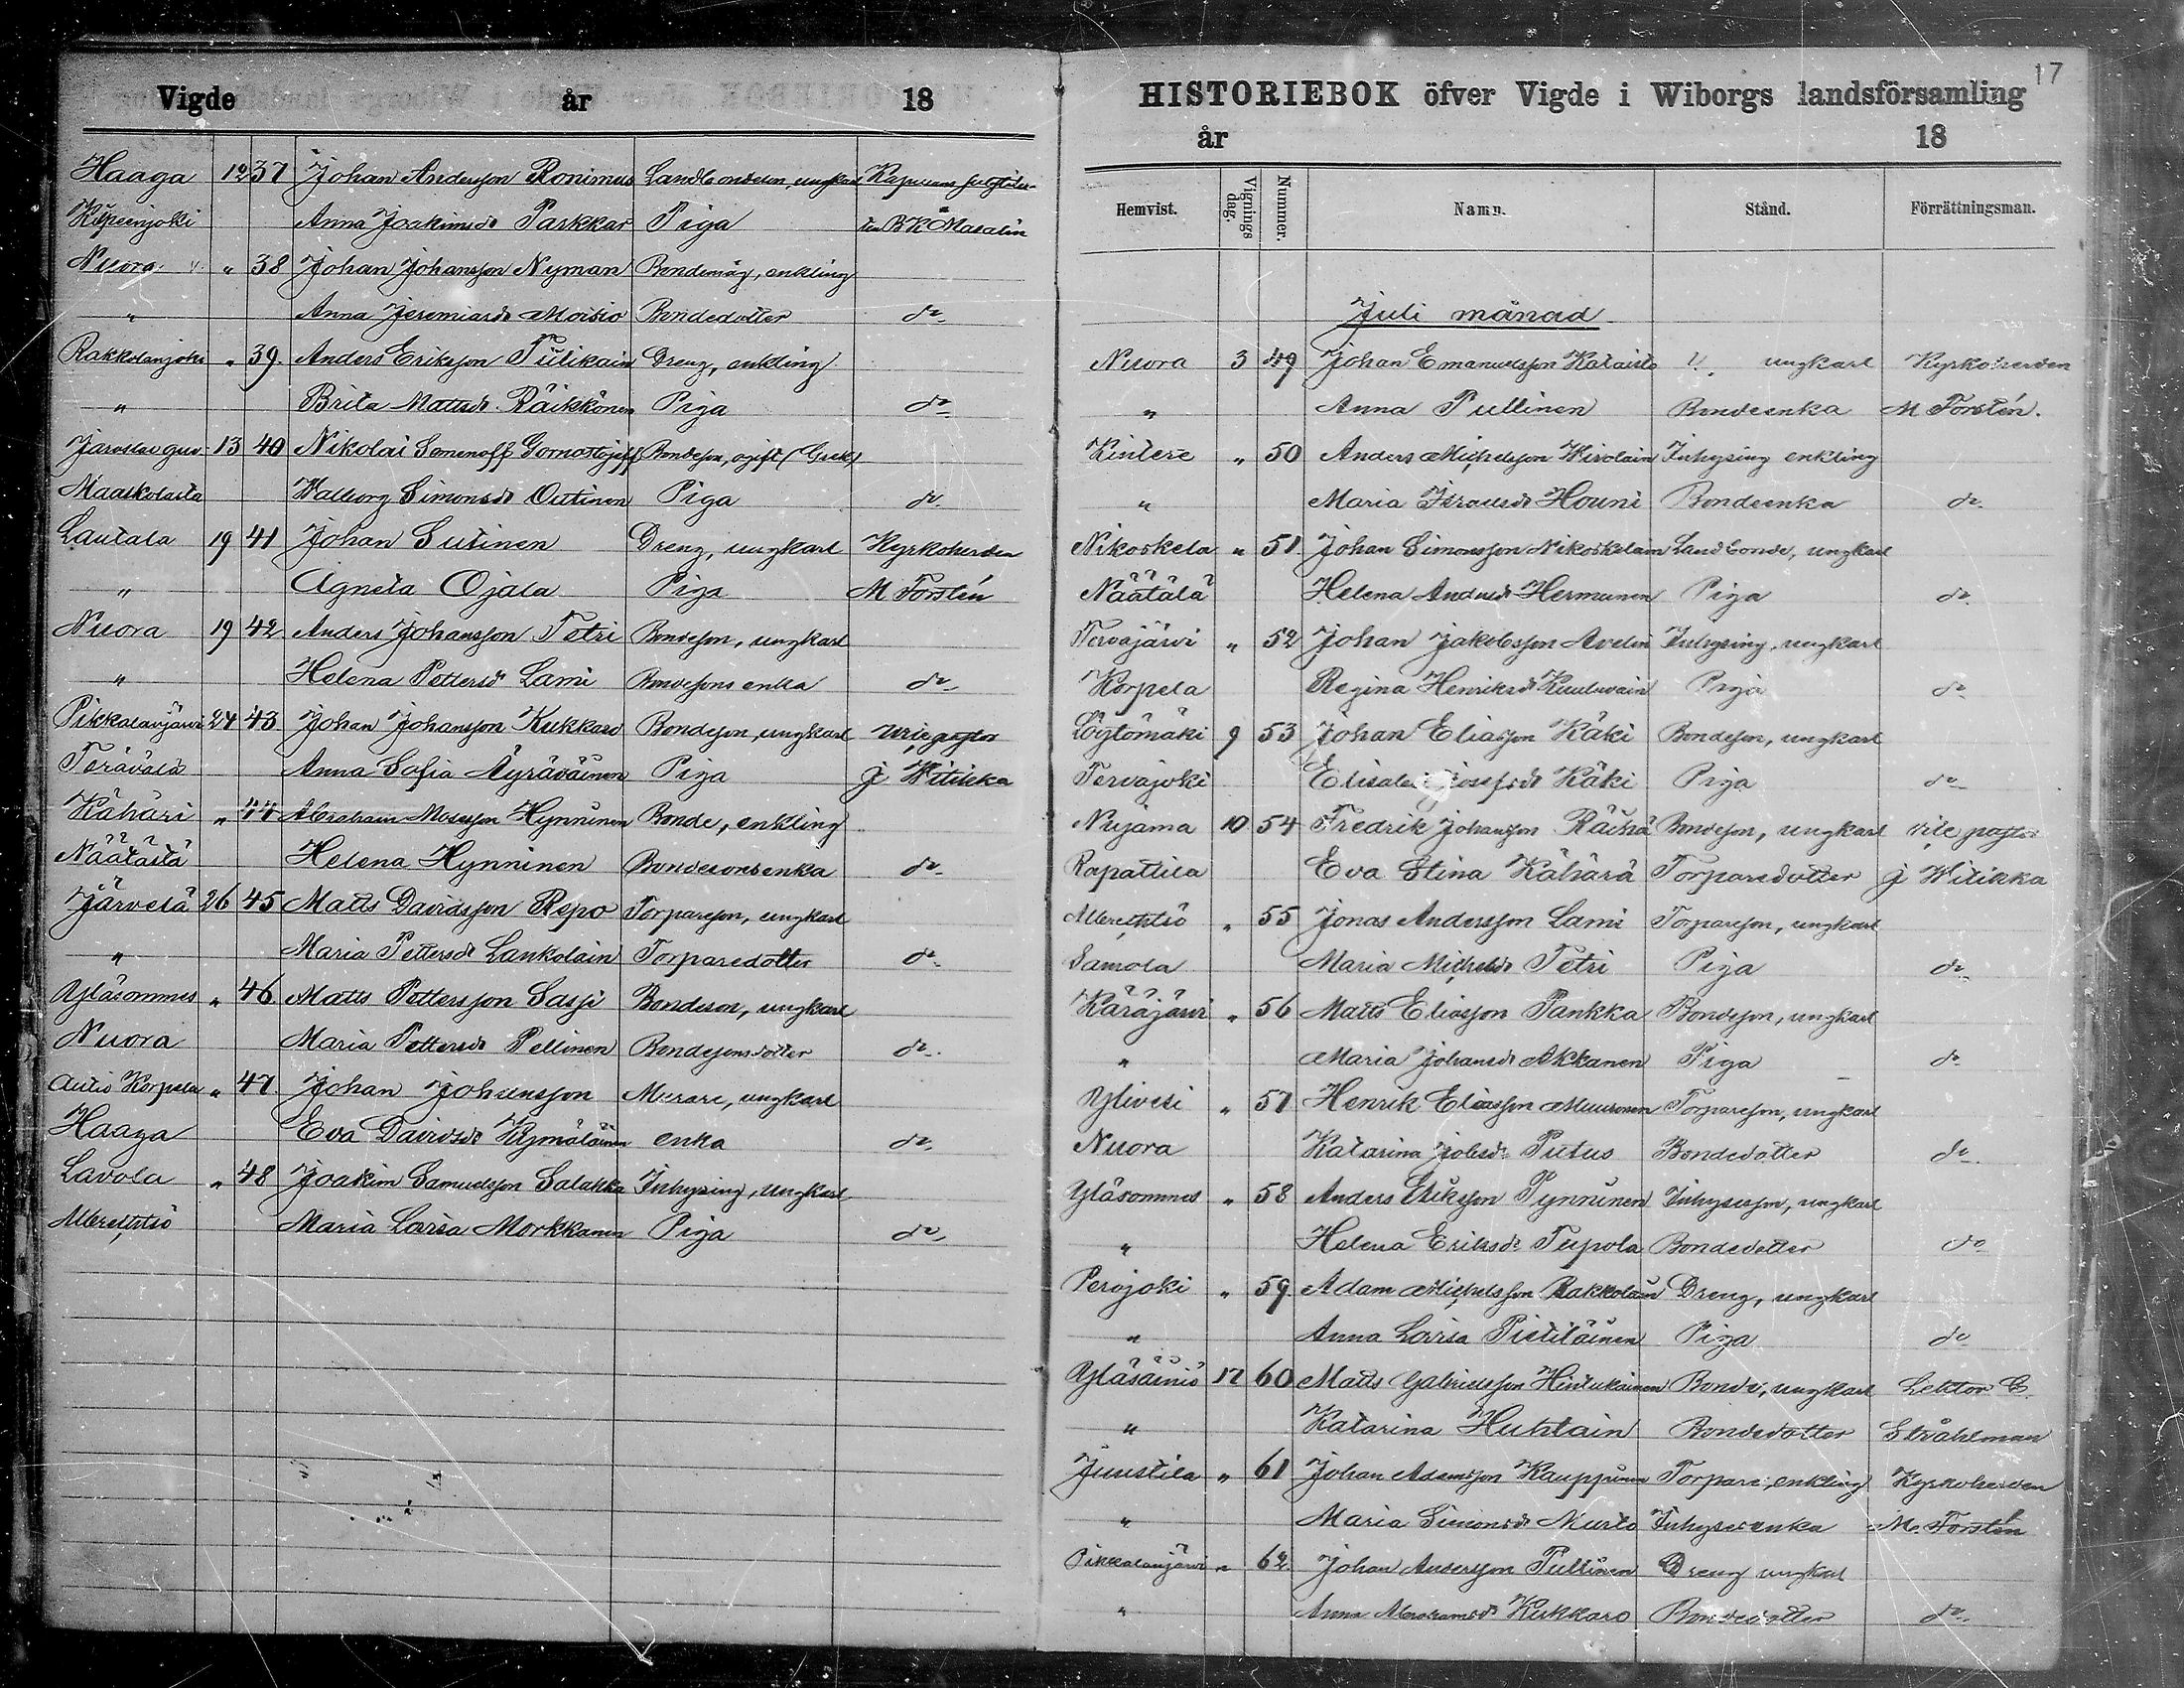 Vigde år 18
Haaga 12 37 Johan Andersson Ronimus Landbondeson, ungkarl
Anna Joakimsdr Parkkar Piga B K Masalin
Nuora " 38 Johan Johansson Nyman Bondemåg, enkling
" Anna Jeremiasdr Moisio Bondedotter do
Rakkolanjoki " 39. Anders Eriksson Tiilikain Dreng, enkling
" Brita Mattsdr Räikkönen Piga do
Jaroslav guv. 13 40 Nikolai Bondeson, ogift (Grek)
Maaskolasta Walborg Simonsdr Outinen Piga do.
Lautala 19 41 Johan Sutinen Dreng, ungkarl Kyrkoherden
" Agneta Ojala Piga M Forstén
Nuora 19 42 Anders Johansson Tetri Bondeson, ungkarl
" Helena Pettersdr Lami Bondesons enka do
Pikkalanjärvi 24 43 Johan Johansson Kukkaro Bondeson, ungkarl vice pastor
Terävälä Anna Sofia Äyräväinen Piga J Witikka
Kähäri " 44 Abraham Mosesson Hynninen Bonde, enkling
Näätälä Helena Hynninen Bondesonsenka do
Järvelä 26 45 Matts Davidsson Repo Torpareson, ungkarl
" Maria Pettersdr Lankolain Torparedotter do
Yläsommes " 46 Matts Pettersson Sasji Bondeson, ungkarl
Nuora Maria Pettersdr Pellinen Bondesonsdotter do
Autio Korpela " 47 Johan Johansson Murare, ungkarl
Haaga Eva Davidsdr Kymäläinen enka do
Lavola " 48 Joakim Samuelsson Salakka Inhysing, ungkarl
Maria Lovisa Morkkanen Piga do
17
HISTORIEBOK öfver Vigde i Wiborgs landsförsamling
år 18
Hemvist. Vignings dag. Nummer. Namn. Stånd. Förrättningsman.
Juli månad
Nuora 3 49 Johan Emanuelsson Kataisto ungkarl Kyrkoherden
" Anna Pullinen Bondeenka M Forstén.
Kintere " 50 Anders Michelsson Wirolain Inhysing enkling
" Maria Houni Bondeenka do.
Nikoskela " 51. Johan Simonsson Nikoskelain Landbonde, ungkarl
Näätälä Helena Andersdr Hermunen Piga do.
Tervajärvi " 52 Johan Jakobsson Avelin Inhysing, ungkarl
Korpela Regina Henriksdr Kuuluvain Piga do
Löytömäki 9 53 Johan Eliasson Käki Bondeson, ungkarl
Tervajoki Josefsdr Käki Piga do
Nujama 10 54 Fredrik Johansson Räihä Bondeson, ungkarl vice pastor
Rapattila Eva Stina Kähärä Torparedotter J Witikka
" 55 Jonas Andersson Lami Torpareson, ungkarl
Samola Maria Michelsdr Tetri Piga do
Käräjärvi " 56 Matts Eliasson Pankka Bondeson, ungkarl
" Maria Johansdr Akkanen Piga do
Ylivesi " 57 Henrik Eliasson Muuronen Torpareson, ungkarl
Nuora Katarina Putus Bondedotter do
Yläsommes " 58 Anders Eriksson Pynninen Inhyseson, ungkarl
" Helena Eriksdr Tupola Bondedotter do
Perojoki " 59. Adam Michelsson Rakkolain Dreng, ungkarl
" Anna Lovisa Pietiläinen Piga do
Yläsäiniö 17 60 Matts Gabrielsson Hintukainen Bonde, ungkarl Lektor C.
" Katarina Huhtain Bondedotter Stråhlman
Juustila " 61 Johan Adamsson Kauppinen Torpare, enkling Kyrkoherden
" Maria Simonsdr Murto Inhyseenka M. Forstén
Pikkalanjärvi " 62. Johan Andersson Pullinen Dreng ungkarl
" Anna Abrahamsdr Kukkaro Bondedotter do